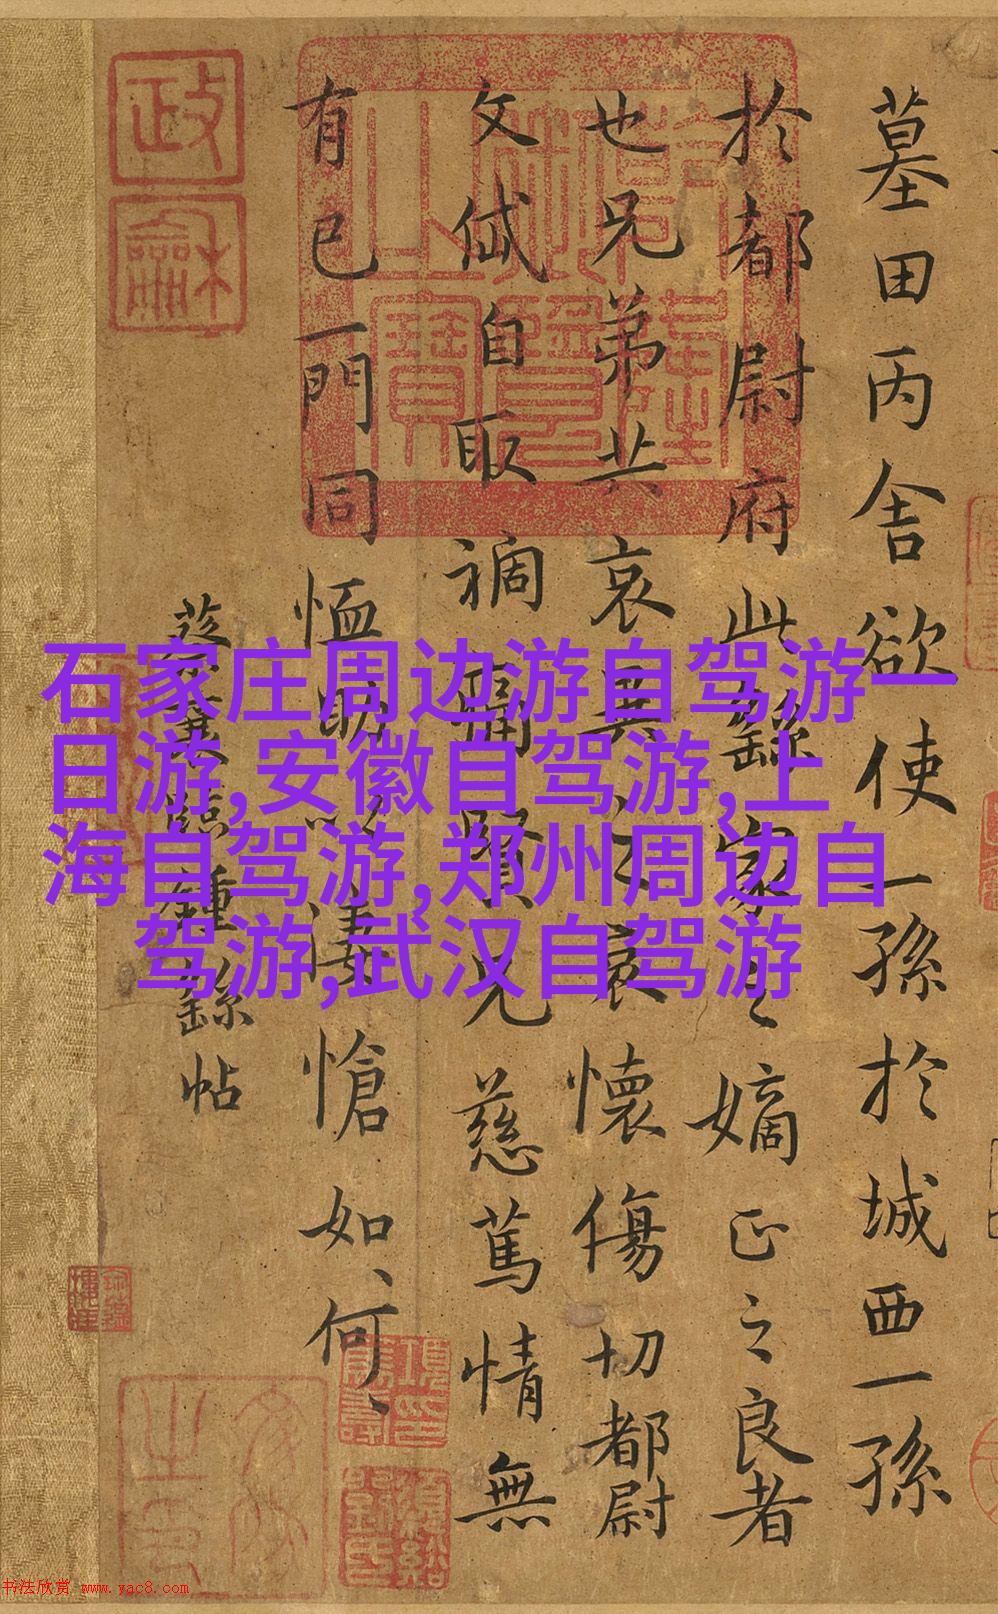 墓田丙舍欲使一孫於城西一孫
於都尉府此繇家之嫡正之良者
也兄弟共哀異之哀懷傷切都尉
文岱自取禍痛賢兄慈篤情無
有已一門同恤助以悽愴如何
蔡襄臨鍾繇帖
政
龢
石家庄周边游自驾游一
日游,安徽自驾游,上
海自驾游,郑州周边自
驾游,武汉自驾游
书法欣赏 www.yac8.com